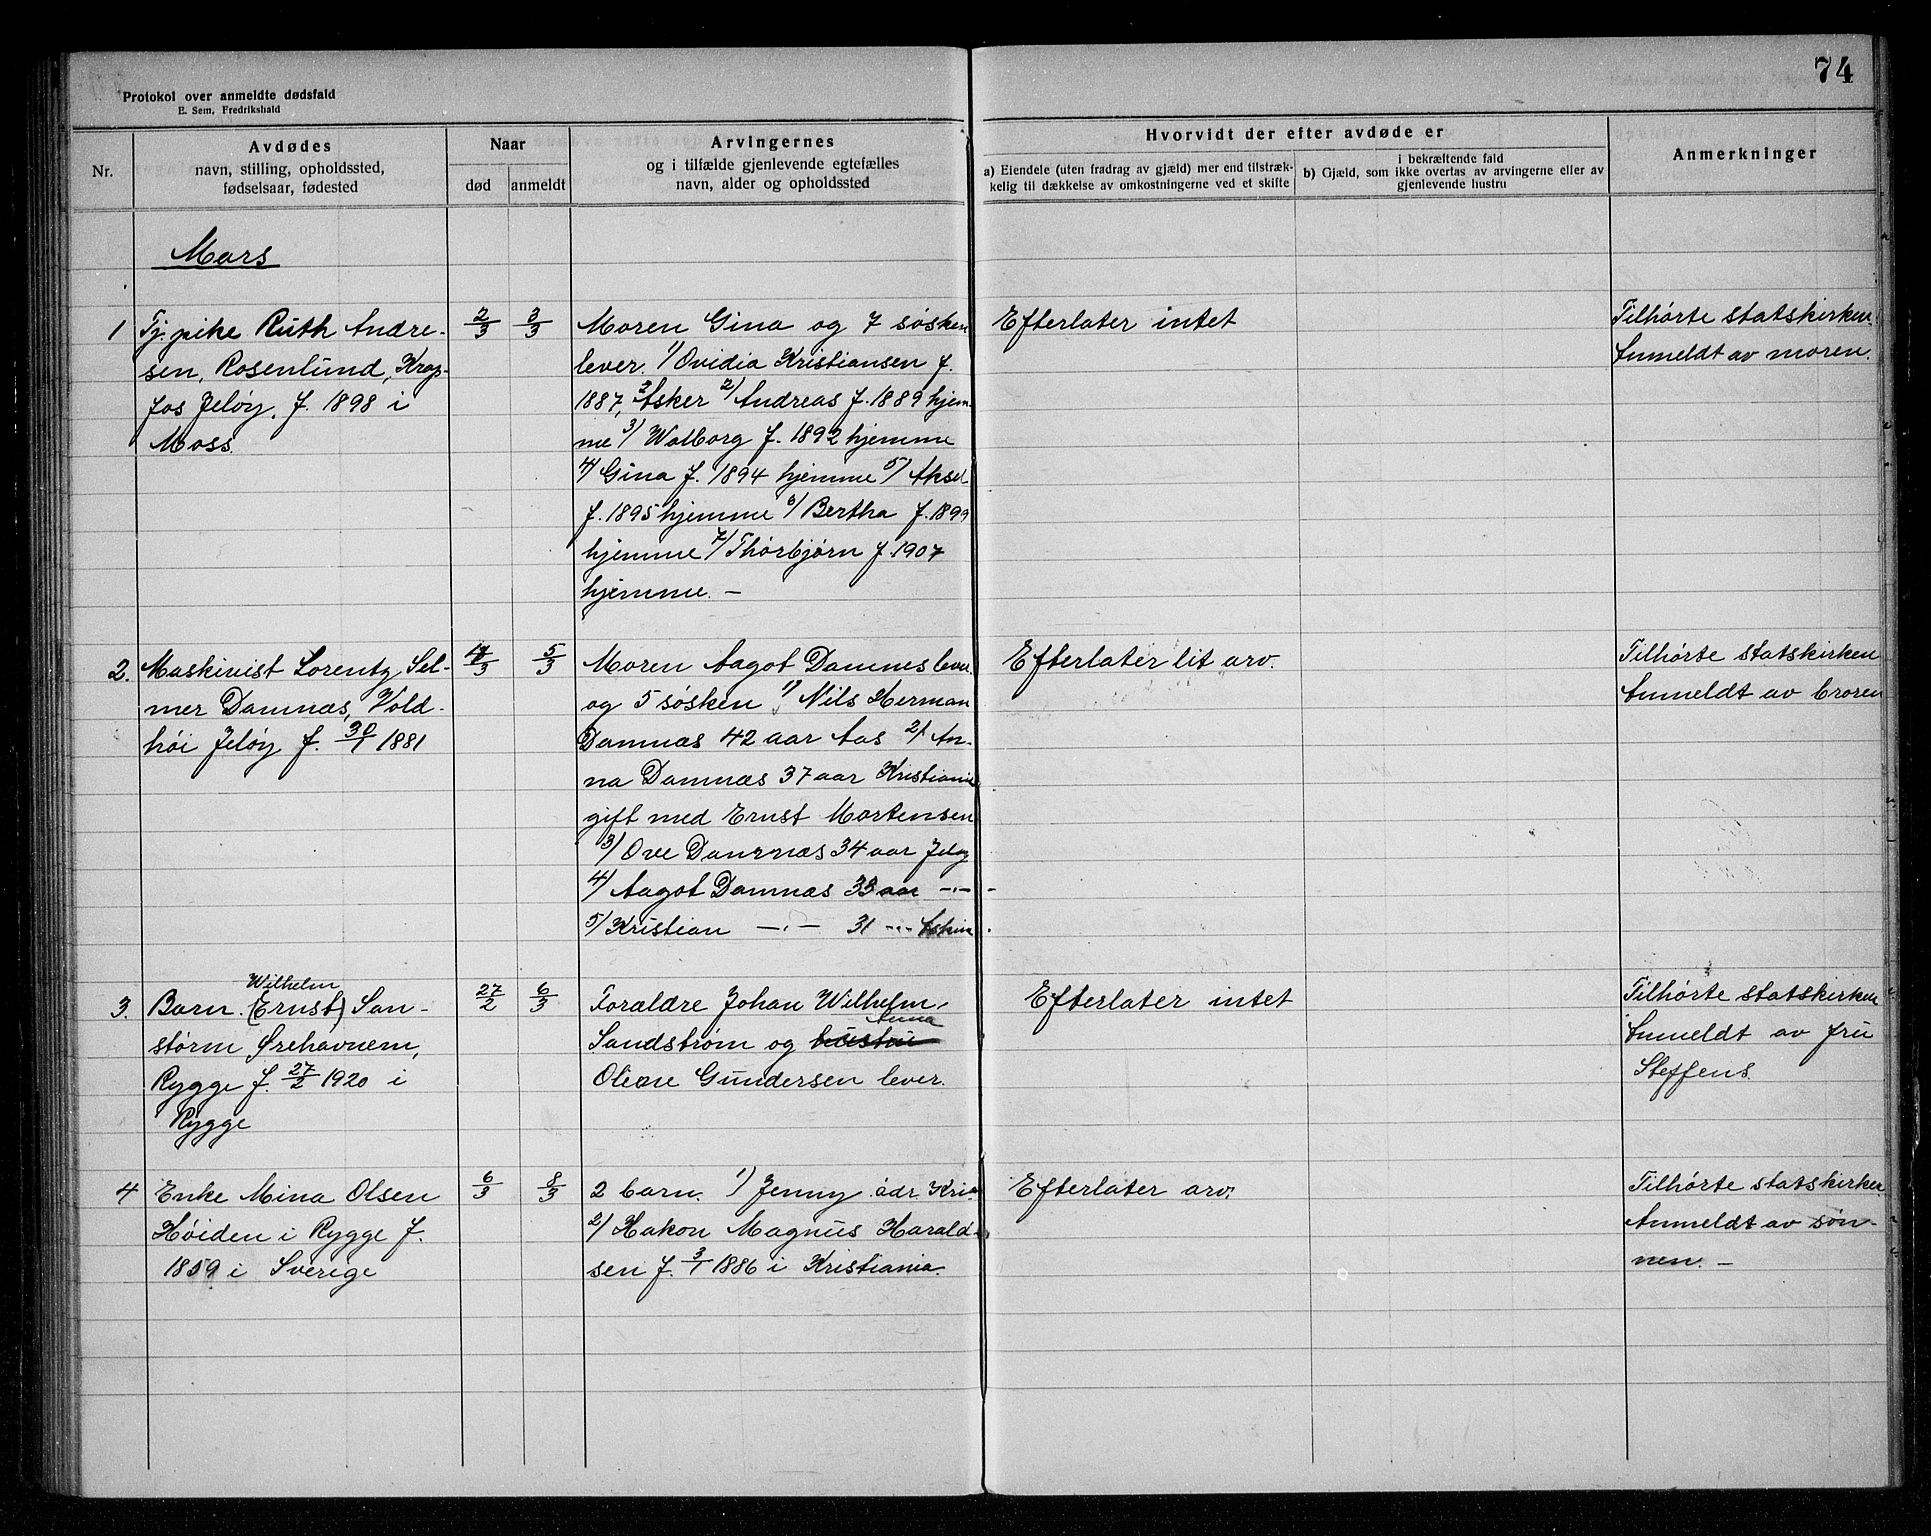 74
Protokol over anmeldte dødsfald
E. Sem, Fredrikshald
Nr.
Avdødes
navn, stilling, opholdssted,
fødselsaar, fødested
Naar
død
anmeldt
Arvingernes
og i tilfælde gjenlevende egtefælles
navn, alder og opholdssted
Hvorvidt der efter avdøde er
a) Eiendele (uten fradrag av gjæld) mer end tilstræk-
kelig til dækkelse av omkostningerne ved et skifte
i bekræftende fald
b) Gjæld, som ikke overtas av arvingerne eller av
gjenlevende hustru
Anmerkninger
Mars
1
Tj. pike Ruth Andre-
sen, Rosenlund, Krap-
fos Jeløy. f. 1898 i
Moss.
2/3
3/3
Moren Gina og 7 søsken
lever. 1) Ovidia Kristiansen f.
1887, Asker 2) Andreas f. 1889 hjem-
me 3) Walborg f. 1892 hjemme
4) Gina f. 1894 hjemme 5) Aksel
f. 1895 hjemme 6) Bertha f. 1899
hjemme 7) Thorbjørn f. 1907
hjemme. –
Efterlater intet
Tilhørte statskirken.
Anmeldt av moren.
2.
Maskinist Lorentz Sel-
mer Damnæs, Vold-
høi Jeløy f. 30/1 1881
4/3
5/3
Moren Aagot Damnes lever
og 5 søsken 1) Nils Herman
Damnæs 42 aar Aas 2) An-
na Damnæs 37 aar Kristiania
gift med Ernst Mortensen
3) Ove Damnæs 34 aar Jeløy
4) Aagot Damnæs 33 aar –"–
5) Kristian –"– 31 –"– Askim
Efterlater lit arv.
Tilhørte statskirken
Anmeldt av broren
3.
Wilhelm
Barn. (Ernst) San-
størm Ørehavnem,
Rygge f. 27/2 1920 i
Rygge
27/2
6/3
Foraldre Johan Wilhelm
Anna
Sandstrøm og hustru
Oleane Gundersen lever.
Efterlater intet
Tilhørte statskirken
Anmeldt av fru
Steffens.
4
Enke Mina Olsen
Høiden i Rygge f.
1859 i Sverige
6/3
8/3
2 barn. 1) Jenny adr. Kria
2) Hakon Magnus Harald-
sen f. 3/1 1886 i Kristiania.
Efterlater arv.
Tilhørte statskirken
Anmeldt av søn-
nen. –